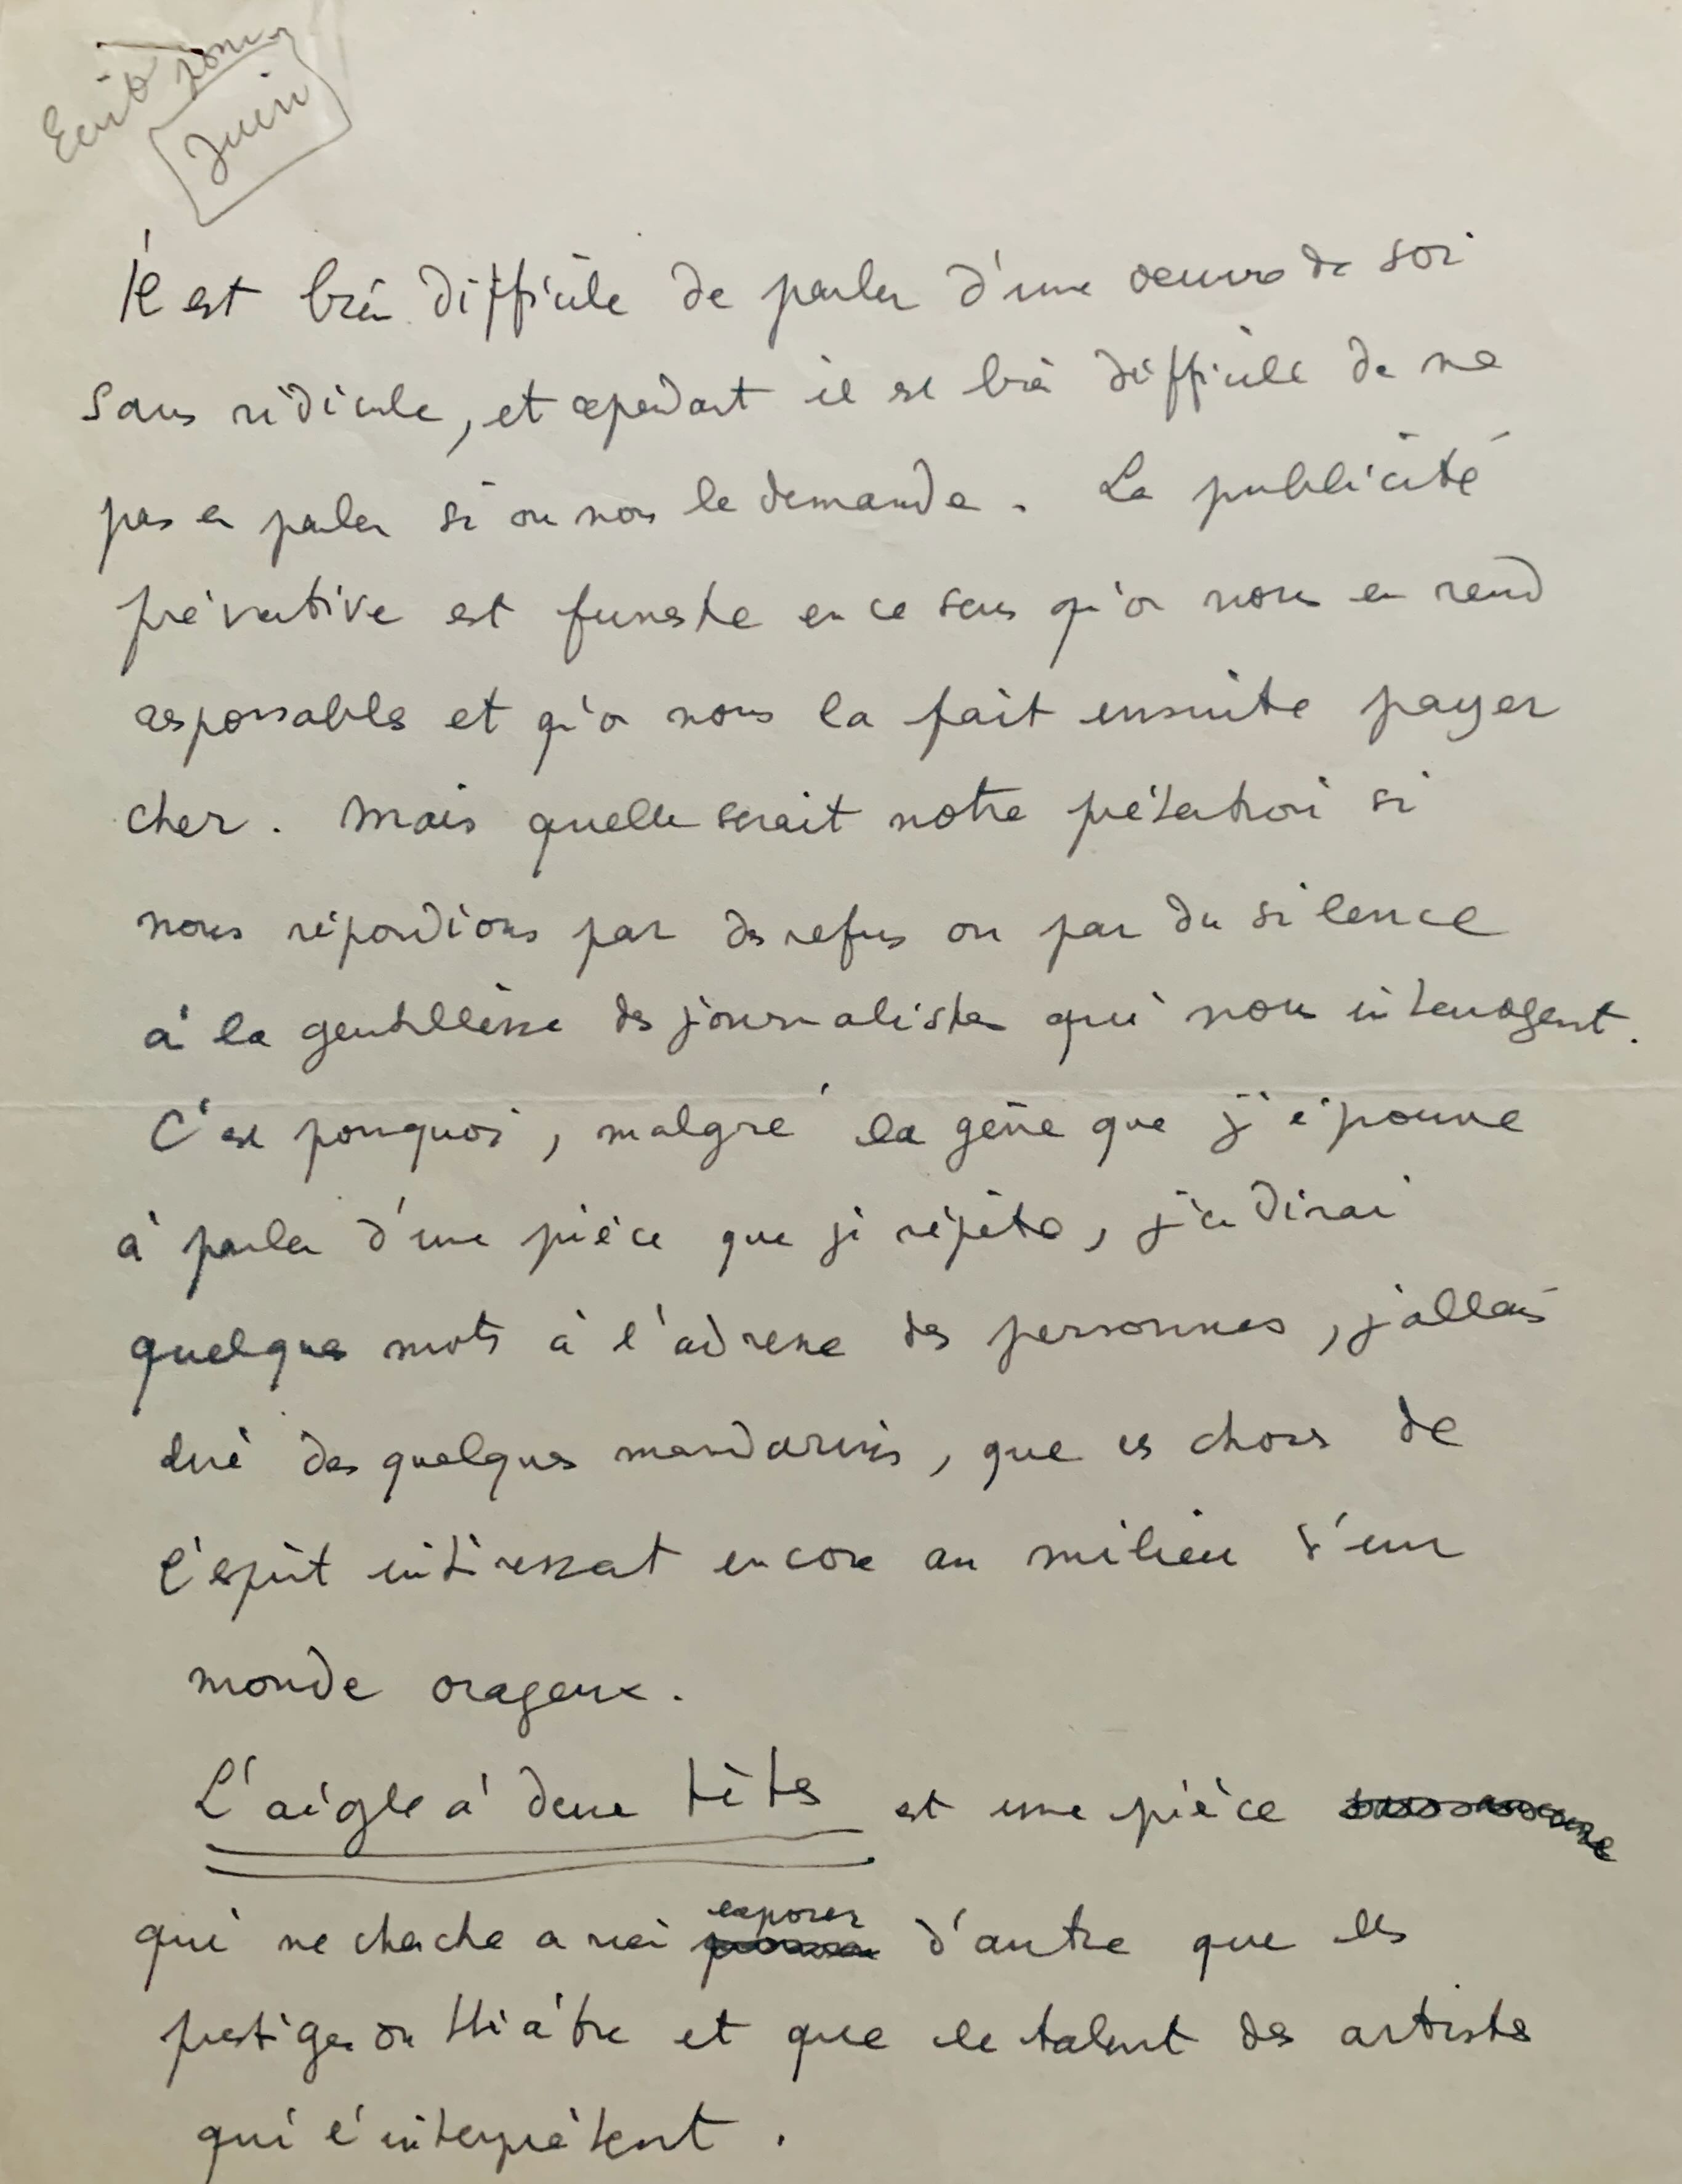 Ecrit pour
Juin
Il est bien difficile de parler d'une oeuvre de soi
sans ridicule, et cependant il est bien difficile de ne
pas en parler si on nous le demande. La publicité
préventive est funeste en ce sens qu'on nous en rend
responsables et qu'on nous la fait ensuite payer
cher. Mais quelle serait notre prétention si
nous répondions par des refus ou par du silence
à la gentillesse des journalistes qui nous interrogent.
C'est pourquoi, malgré la gêne que j'éprouve
à parler d'une pièce que je répète, j'en dirai
quelques mots à l'adresse des personnes, j'allais
dire des quelques mandarins, que ces choses de
l'esprit intéressent encore au milieu d'un
monde orageux.
L'aigle à deux têtes est une pièce
exposer
qui ne cherche a rien d'autre que les
prestiges du théâtre et que le talent des artistes
qui l'interprètent.